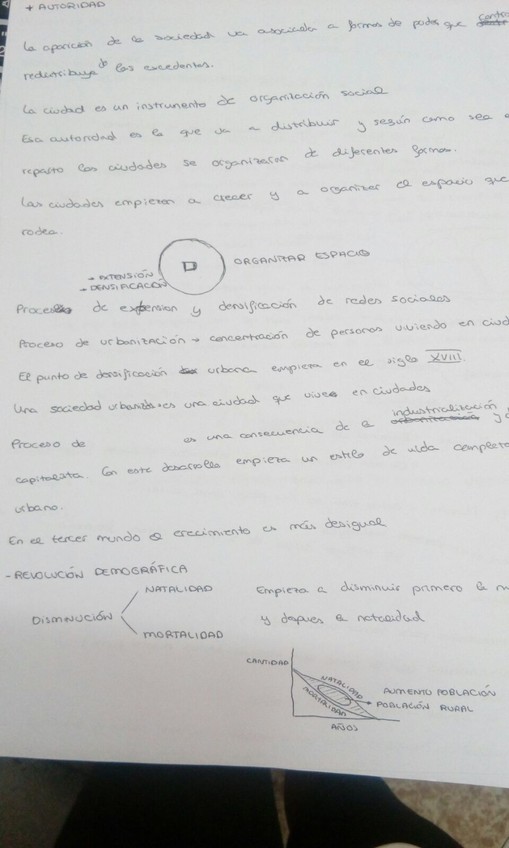 + AUTORIDAD
La aparición de la sociedad va asociada a formas de poder que
redistribuya los excedentes.
La ciudad es un instrumento de organización social
Esa autoridad es la que va a distribuir y según como sea
reparto las ciudades se organizaron de diferentes formas.
Las ciudades empiezan a crecer y a organizar el espacio que
rodea.
ORGANIZAR ESPACIO
- EXTENSIÓN
- DENSIFICACIÓN
Proceso de expansion y densificación de redes sociales
Proceso de urbanización → concentración de personas viviendo en ciud
El punto de densificación urbana empieza en el siglo XVIII.
Una sociedad urbana es una ciudad que vive en ciudades
industrialización
Proceso de es una consecuencia de la y
capitalista. Con este desarrollo empieza un estilo de vida complet
urbano.
En el tercer mundo el crecimiento es más desigual
- REVOLUCIÓN DEMOGRÁFICA
NATALIDAD Empieza a disminuir primero la m
DISMINUCIÓN y depues la natalidad
MORTALIDAD
CANTIDAD
NATALIDAD
MORTALIDAD
AUMENTO POBLACIÓN
POBLACIÓN RURAL
AÑOS